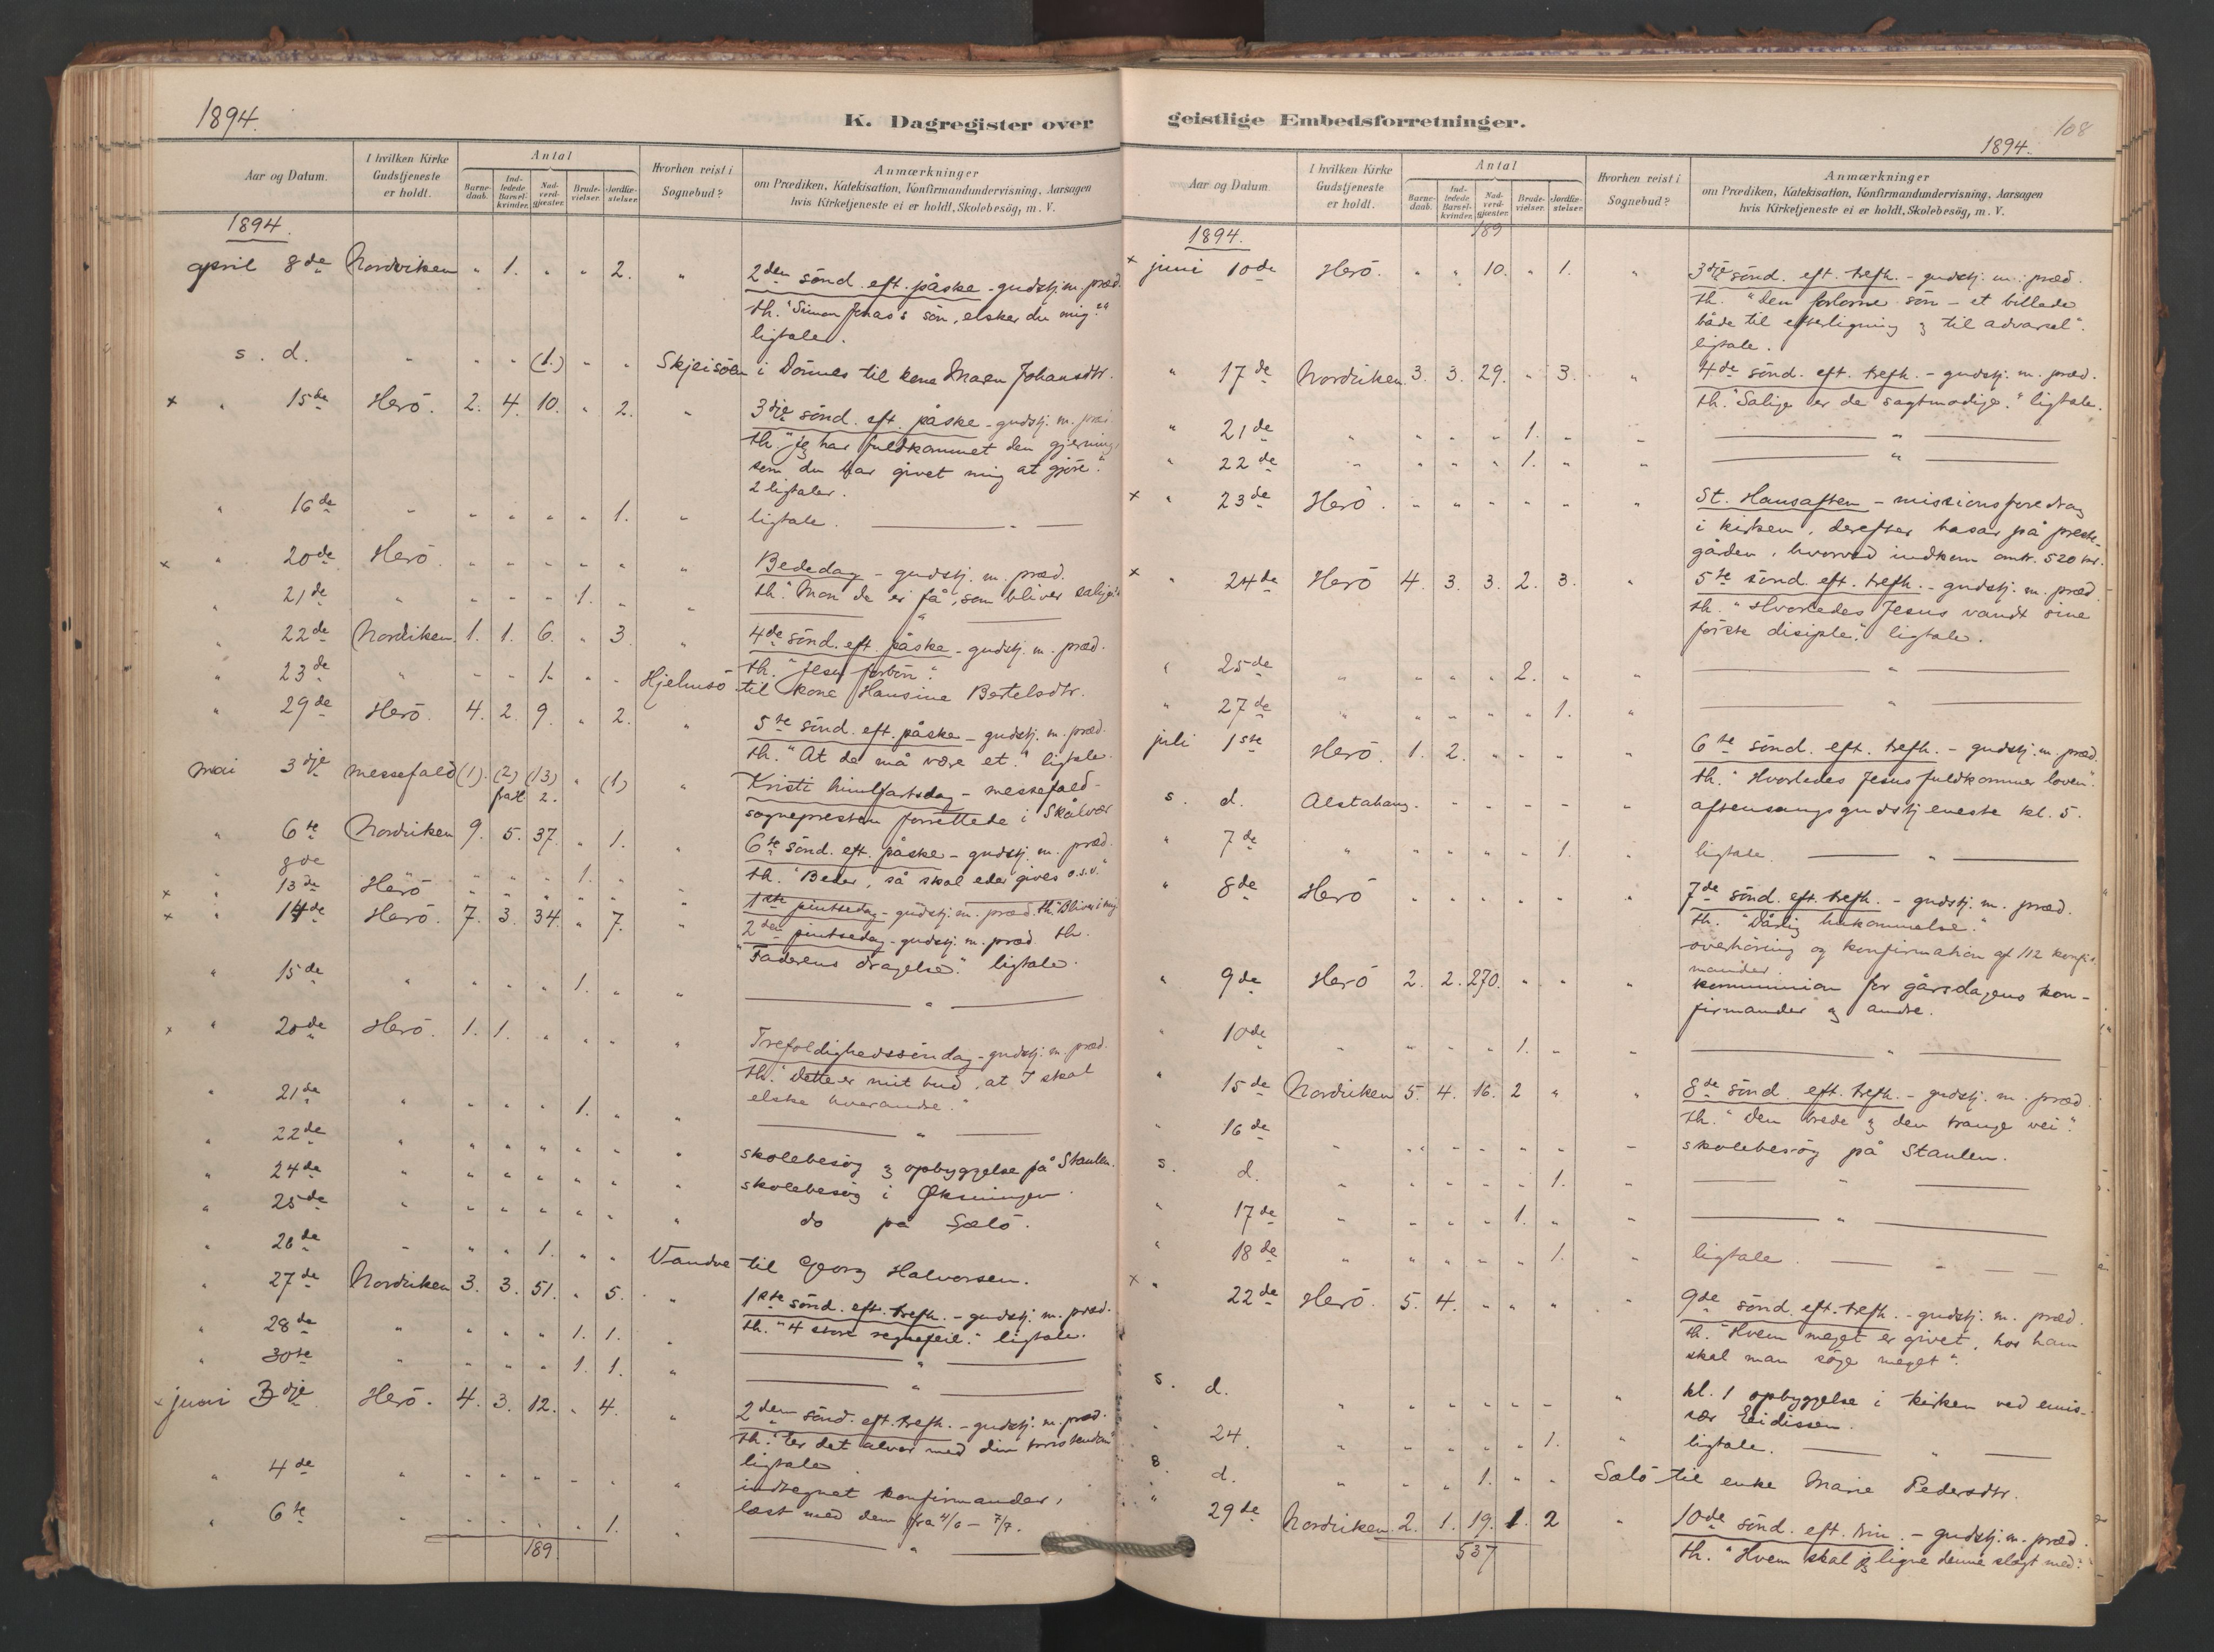 1894.
K. Dagregister over
Aar og Datum.
I hvilken Kirke Gudstjeneste er holdt.
Antal
Barne-daab.
Ind-ledede Barsel-kvinder.
Nad-verd-gjæster.
Brude-vielser.
Jordfæ-stelser.
Hvorhen reist i Sognebud?
Anmærkninger
om Prædiken, Katekisation, Konfirmandundervisning, Aarsagen
hvis Kirketjeneste ei er holdt, Skolebesög, m. V.
1894.
april 8de Nordviken " 1. " " 2. " 2den sönd. eft. påske - gudstj. m. præd.
th. "Simon Jonas's sön, elsker du mig?"
ligtale.
s. d. " " " (1.) " " Skjeisöen i Dönnes til kone Maren Johansdtr.
x " 15de Herö. 2. 4. 10. " 2. " 3dje sönd. eft. påske - gudstj. m. præd
th. "jeg har fuldkommet den gjerning,
som du har givet mig at gjöre".
2 ligtaler.
" 16de " " " " " 1. " ligtale. — " —
x " 20de Herö " " " " " " Bededag - gudstj. m. præd.
th. "Mon de er få, som bliver salige"
" 21de " " " " 1. " " — " —
" 22de Nordviken. 1. 1. 6. " 3. " 4de sönd. eft. påske - gudstj. m. præd.
th. "Jesu forbön".
" 23de " " " 1. " " Hjelmsö til kone Hansine Bertelsdtr.
" 29de Herö. 4. 2. 9. " 2. " 5te sönd. eft. påske - gudstj. m. præd.
th. "At de må være et." ligtale.
mai 3dje messefald (1). (2) (13) " (1) " Kristi himlfartsdag - messefald -
fratl 2.
sognepresten forrettede i Skålvær
" 6te Nordviken 9. 5. 37. " 1. " 6te sönd. eft. påske - gudstj. m. præd.
th. "Beder, så skal eder gives o.s.v."
" 8de " " " 1. "
x " 13de Herö " " " " " " 1ste pintsedag - gudstj. m. præd. th. "Bliver i mig
x " 14de Herö. 7. 3. 34. " 7. " 2den pintsedag - gudstj. m. præd th.
"Faderens dragelse." ligtale.
" 15de " " " " 1. " " — " —
x " 20de Herö. 1. 1. " " " " Trefoldighedssöndag - gudstj. m. præd.
th. "Dette er mit bud, at I skal
elske hverandre."
" 21de " " " " 1. " " — " —
" 22de " " " " " " " skolebesög og opbyggelse på Staulen.
" 24de " " " " " " " skolebesög i Øksningen.
" 25de " " " " " " " do på Sælö.
" 26de " " " 1. " " Vandve til Georg Halvorsen.
" 27de Nordviken 3. 3. 51. " 5. " 1ste sönd. eft. trefh. - gudstj. m. præd.
th. "4 store regnefeil." ligtale.
" 28de " " " " 1. 1. " — " —
" 30te " " " " 1. 1. " — " —
x juni 3dje Herö. 4. 3. 12. " 4. " 2den sönd. eft. trefh. - gudstj. m. præd.
th. "Er det alvor med din kristendom"
ligtale
" 4de " " " " " " " indtegnet konfirmander,
læst med dem fra 4/6 - 7/7.
" 6te " " " " " 1. " — " —
189.
geistlige Embedsforretninger.
108
1894.
Aar og Datum
I hvilken Kirke Gudstjeneste er holdt.
Antal
Barne-daab.
Ind-ledede Barsel-kvinder.
Nad-verd-gjæster.
Brude-vielser.
Jordfæ-stelser.
Hvorhen reist i Sognebud?
Anmærkninger
om Prædiken, Katekisation, Konfirmandundervisning, Aarsagen
hvis Kirketjeneste ei er holdt, Skolebesög, m. V.
1894. 189
x juni 10de Herö. " " 10. " 1. " 3dje sönd. eft. trefh. - gudstj. m. præd.
th. "Den forlorne sön - et billede
både til efterligning og til advarsel".
ligtale.
" 17de Nordviken 3. 3. 29. " 3. " 4de sönd. eft. trefh. - gudstj. m. præd.
th. "Salige er de sagtmodige." ligtale.
" 21de " " " " 1. " " — " —
" 22de " " " " 1. " " — " —
x " 23de Herö. " " " " " " St. Hansaften - missionsforedrag
i kirken, derefter basar på preste-
gården, hvorved indkom omtr. 520 kr.
x " 24de Herö 4. 3. 3. 2. 3. " 5te sönd. eft. trefh. - gudstj. m. præd
th. "Hvorledes Jesus vandt sine
förste disiple." ligtale.
" 25de " " " " 2. " " — " —
" 27de " " " " " 1. — " —
juli 1ste Herö. 1. 2. " " " " 6te sönd. eft. trefh. - gudstj. m. præd.
th. "Hvorledes Jesus fuldkommer loven".
s. d. Alstahaug. " " " " " " aftensangsgudstjeneste kl. 5.
" 7de " " " " " 1. " ligtale. — " —
" 8de Herö " " " " " " 7de sönd. eft. trefh. - gudstj. m. præd.
th. "Dårlig hukommelse."
overhöring og konfirmation af 112 konfir-
mander.
" 9de Herö 2. 2. 270. " " " kommunion for gårsdagens kon-
firmander og andre.
" 10de " " " " 1. " " — " —
" 15de Nordviken 5. 4. 16. 2 " " 8de sönd. eft. trefh. - gudstj. m. præd.
th. "Den brede og den trange vei".
" 16de " " " " " " skolebesög på Staulen.
s. d. " " " " " 1. " — " —
" 17de " " " " 1. " " — " —
" 18de " " " " " 1. " ligtale. — " —
x " 22de Herö. 5. 4. " " " " 9de sönd. eft. trefh. - gudstj. m. præd.
th. "Hvem meget er givet, hos ham
skal man söge meget".
s. d. " " " " " " " kl. 1 opbyggelse i kirken ved emis-
sær Eidissen.
" 24. " " " " " 1. " ligtale. — " —
s. d. " " " 1. " " Sælö til enke Marie Pedersdtr.
" 29de Nordviken. 2. 1. 19. 1. 2 " 10de sönd. eft. trin. - gudstj. m. præd.
537 th. "Hvem skal jeg ligne denne slægt med."